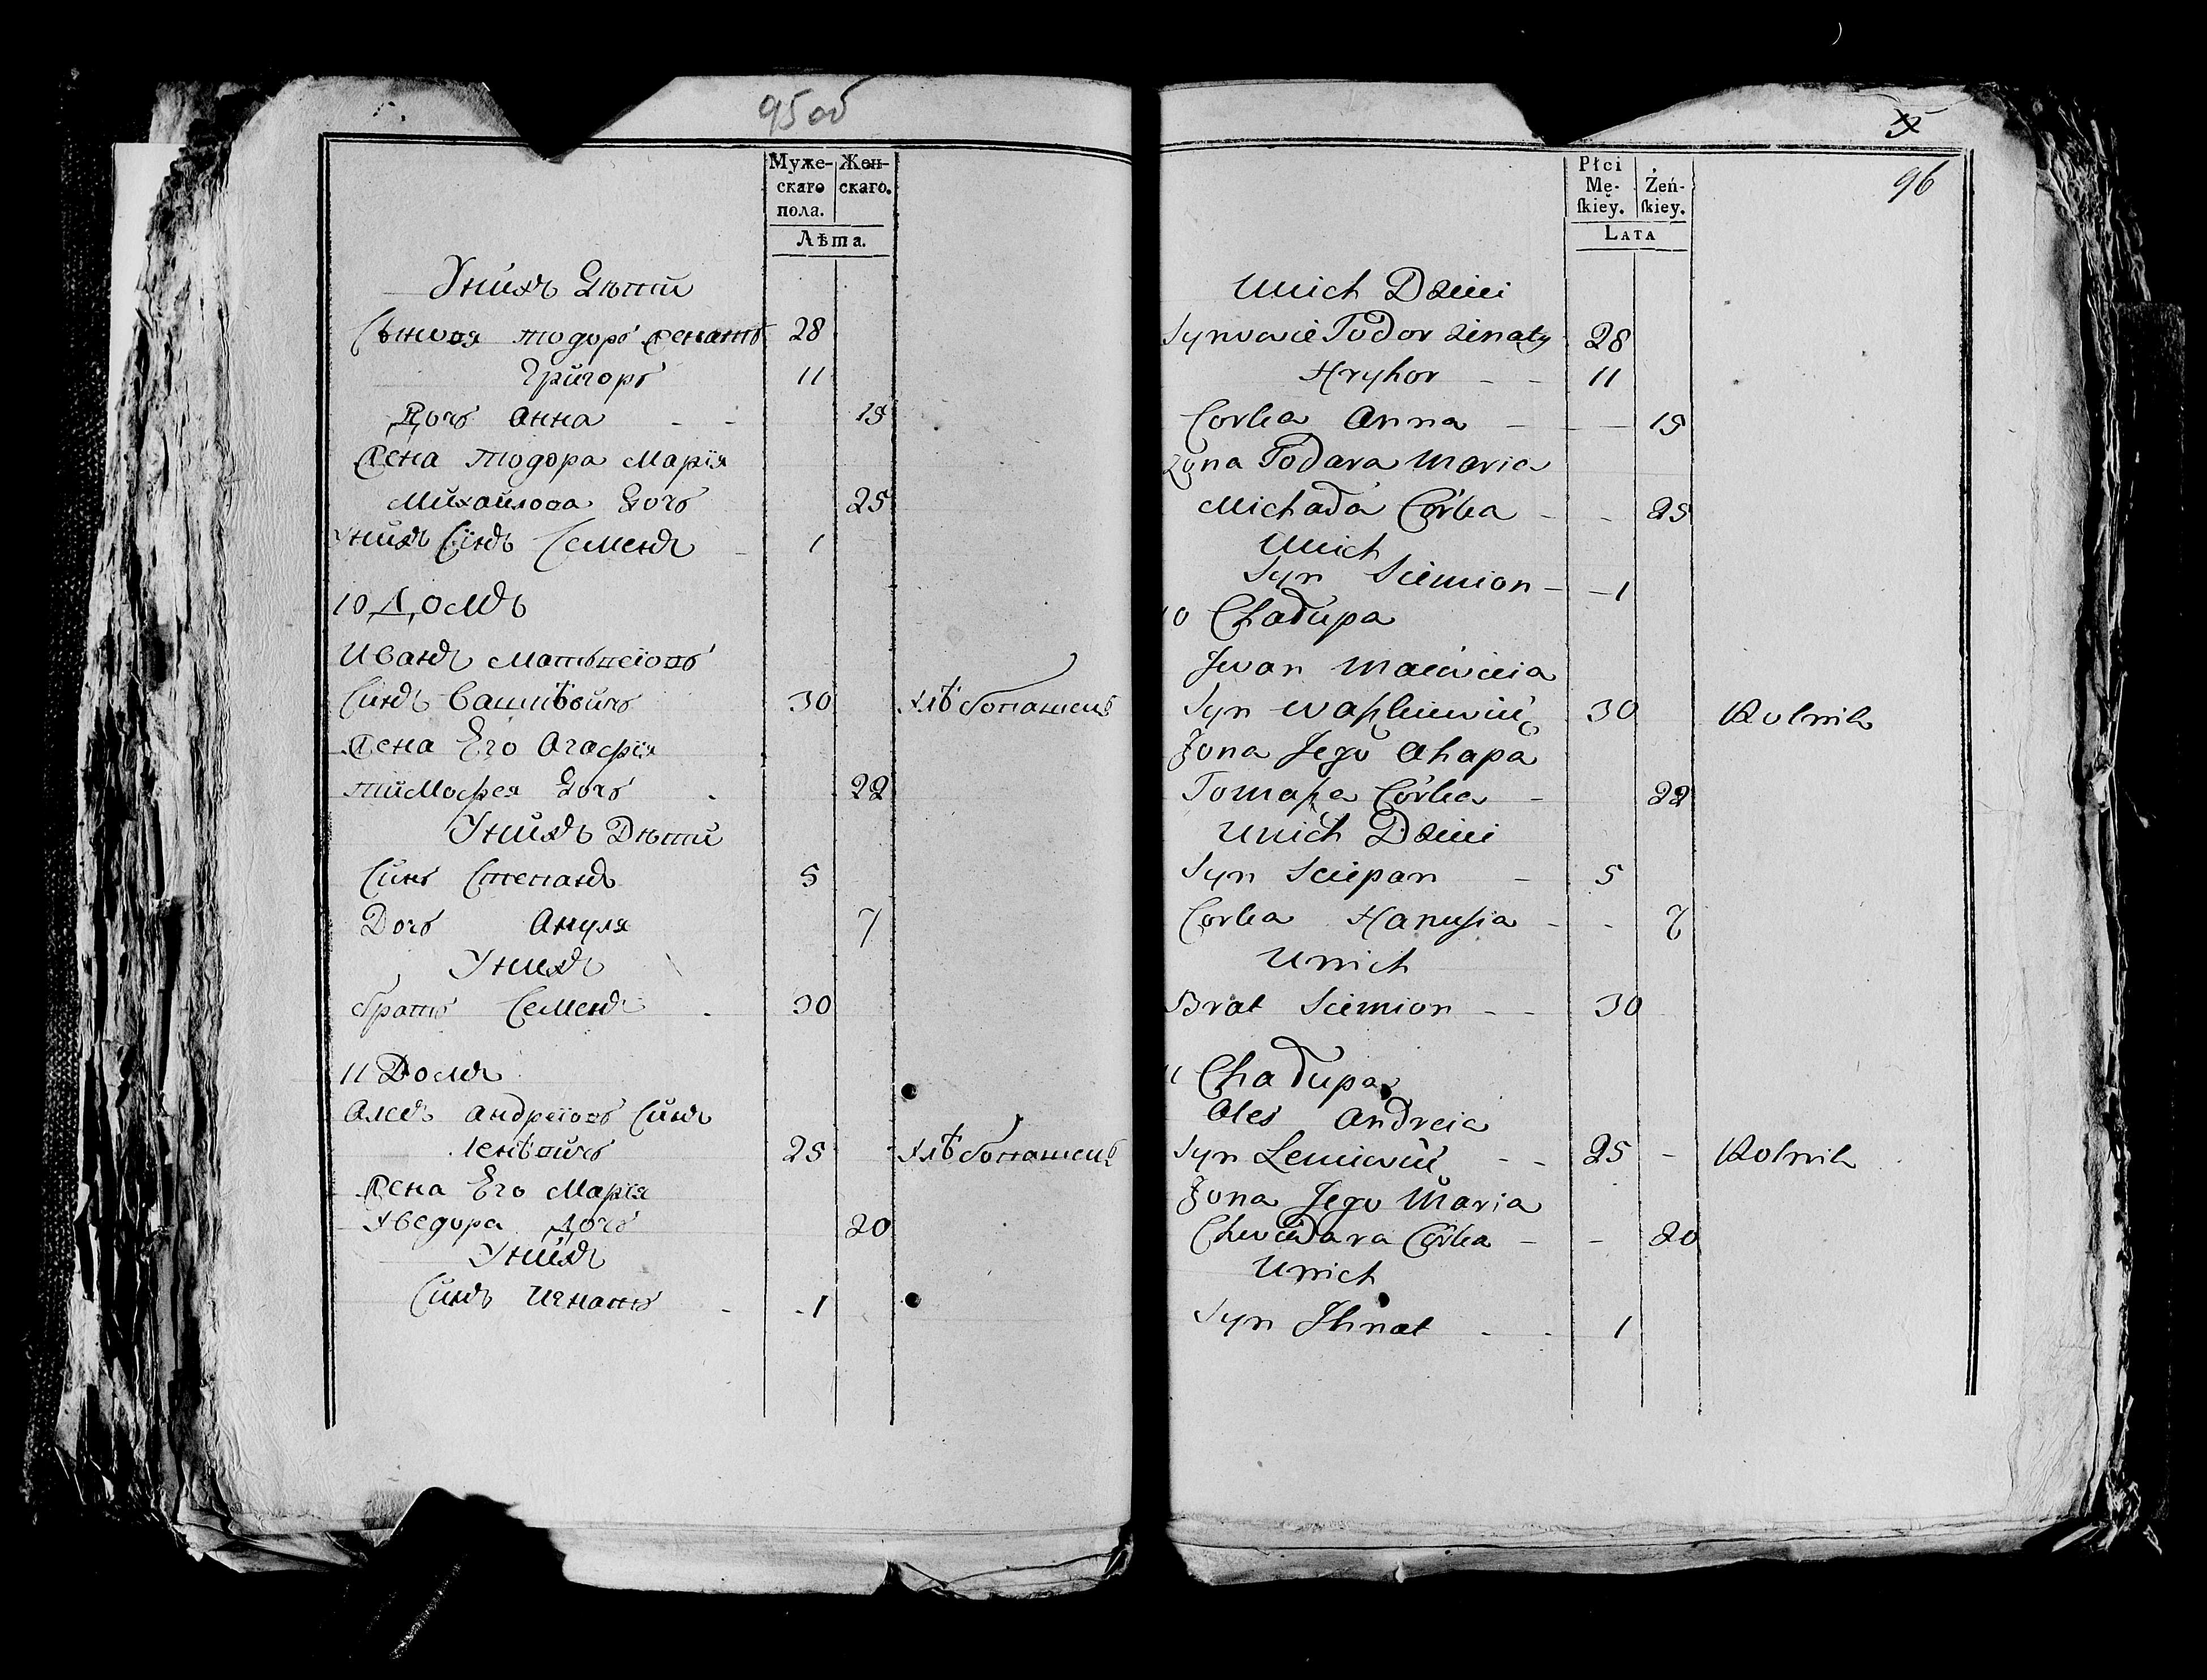 95 об
Муже-
скаго
пола.
Жен-
скаго.
Лѣта.
Унихъ Дѣти
Сынове тодоръ женатъ 28
Григоръ 11
Дочь Анна - - 15
Жена тодора Марія
Михайлова Дочь 25
Унихъ Синъ Семенъ - 1
10 Домъ
Иванъ Матвеіовъ
Синъ Вашкѣвичъ 30 Хлѣбопашецъ
Жена Его Агафія
тимофея Дочь 22
Унихъ Дѣти
Синъ Степанъ 5
ДочьАнуля 7
Унихъ
братъ Семенъ 30
11 Домъ
Алесь андреіовъ Синъ
ленѣвичъ 25 Хлѣбопашецъ
Жена Его Марія
Хведора Дочь 20
Унихъ
Синъ Игнатъ - 1
X
96
Płci
Mę-
ſkiey.
Żeń-
ſkiey.
LATA
Unich Dzieci
Synowie Todor żinaty 28
Hryhor - - 11
Corka Anna - - - 15
żona Todara Maria
Michała Córka - - 25
Unich
Syn Siemion - - 1
10 Chałupa
Jwan Maćwieia
Syn Waſzkiewicz 30 Rolnik
Żona Jego Ahapa
Tomaſza Córka - 22
Unich Dzieci
Syn Sciepan - 5
Corka Hanuſia - - 7
Unich
Brat Siemion - - 30
11 Chałupa
Oleś Andreia
Syn Leniewicz - - 25 - Rolnik
Żona Jego Maria
Chwiedara Córka - - 20
Unich
Syn Ihnat - - 1